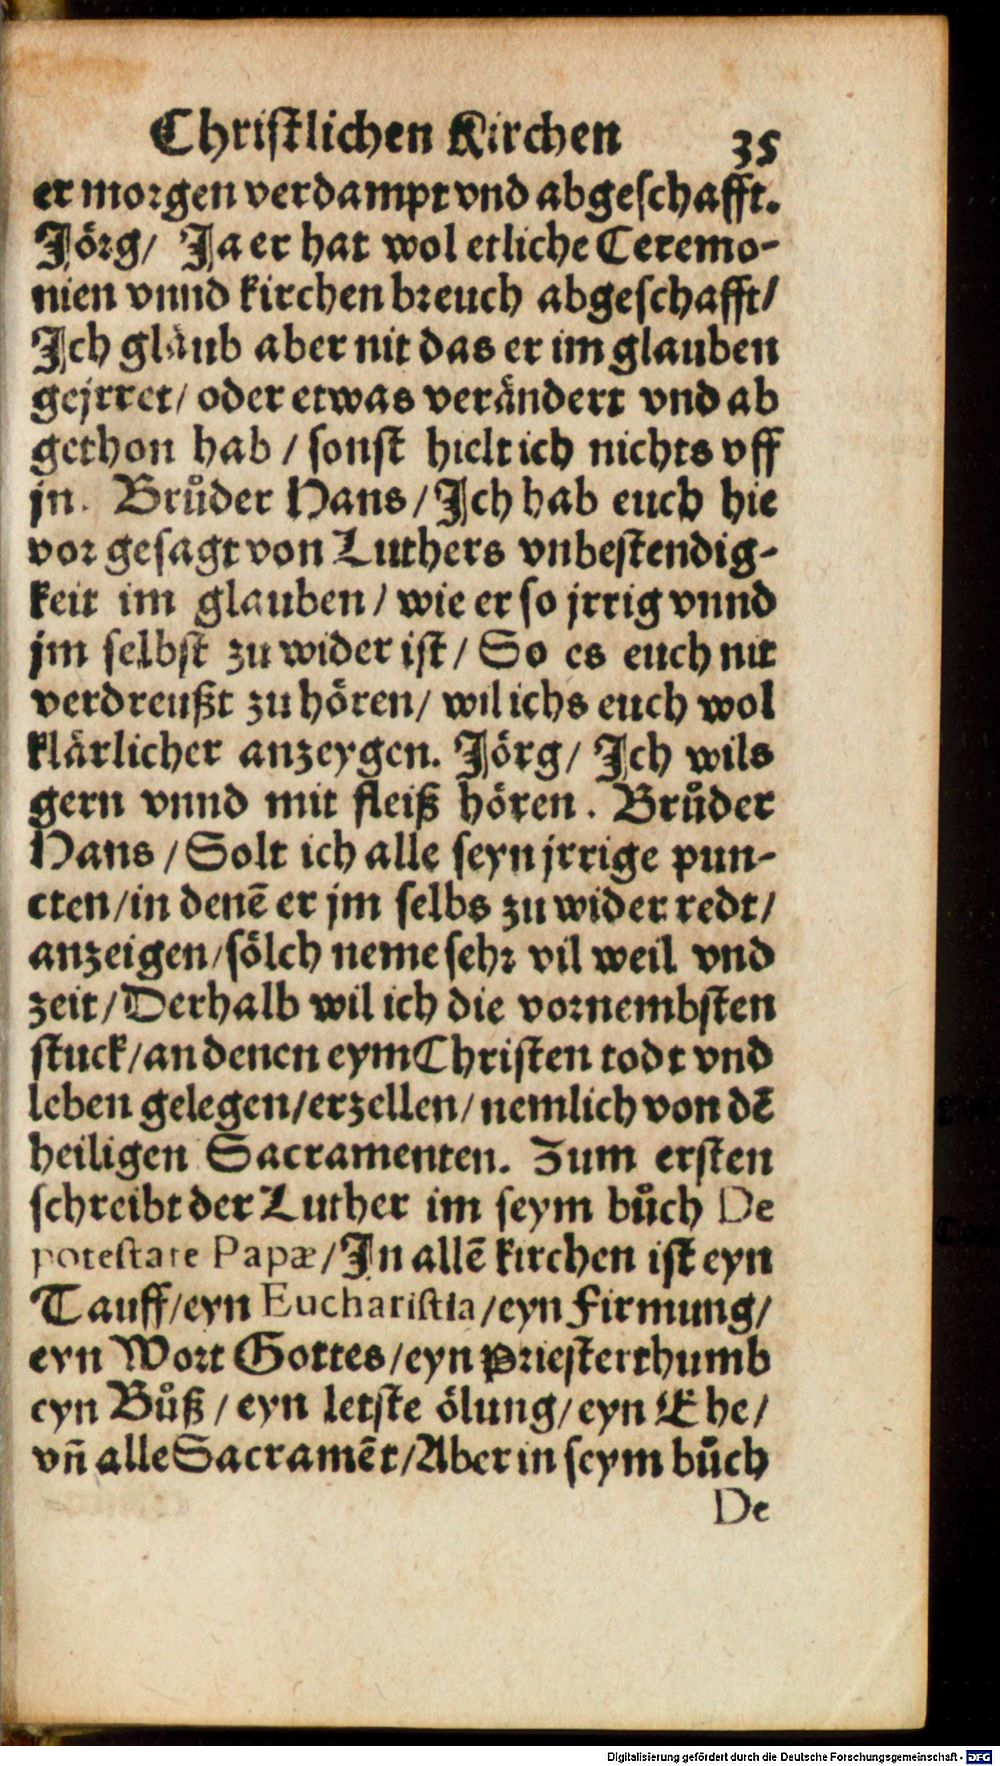 Christlichen Kirchen 35
er morgen verdampt vnd abgeschafft.
Jörg/ Ja er hat wol etliche Ceremo-
nien vnnd kirchen breuch abgeschafft/
Jch glaub aber nit das er im glauben
gejrret/ oder etwas verändert vnd ab
gethon hab / sonst hielt ich nichts vff
jn. Brůder Hans/ Jch hab euch hie
vor gesagt von Luthers vnbestendig-
keit im glauben/ wie er so jrrig vnnd
jm selbst zu wider ist/ So es euch nit
verdreußt zu hören/ wil ichs euch wol
klärlicher anzeygen. Jörg/ Jch wils
gern vnnd mit fleiß hören. Brůder
Hans/ Solt ich alle seyn jrrige pun-
cten/in denē er jm selbs zu wider redt/
anzeigen/sölch neme sehr vil weil vnd
zeit/Derhalb wil ich die vornembsten
stuck/an denen eym Christen todt vnd
leben gelegen/erzellen/ nemlich von dē
heiligen Sacramenten. Zum ersten
schreibt der Luther im seym bůch De
potestate Papæ/Jn allē kirchen ist eyn
Tauff/eyn Eucharistia/eyn Firmung/
eyn Wort Gottes/eyn Priesterthumb
eyn Bůß/ eyn letste ölung/eyn Ehe/
vn̄ alle Sacramēt/Aber in seym bůch
De
Digitalisierung gefördert durch die Deutsche Forschungsgemeinschaft - DFG